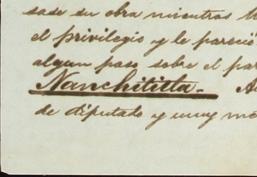 sase su obra mientras
el privilegio y le pareció
algun paso sobre el par
Nanchititla. A
de diputado y muy me